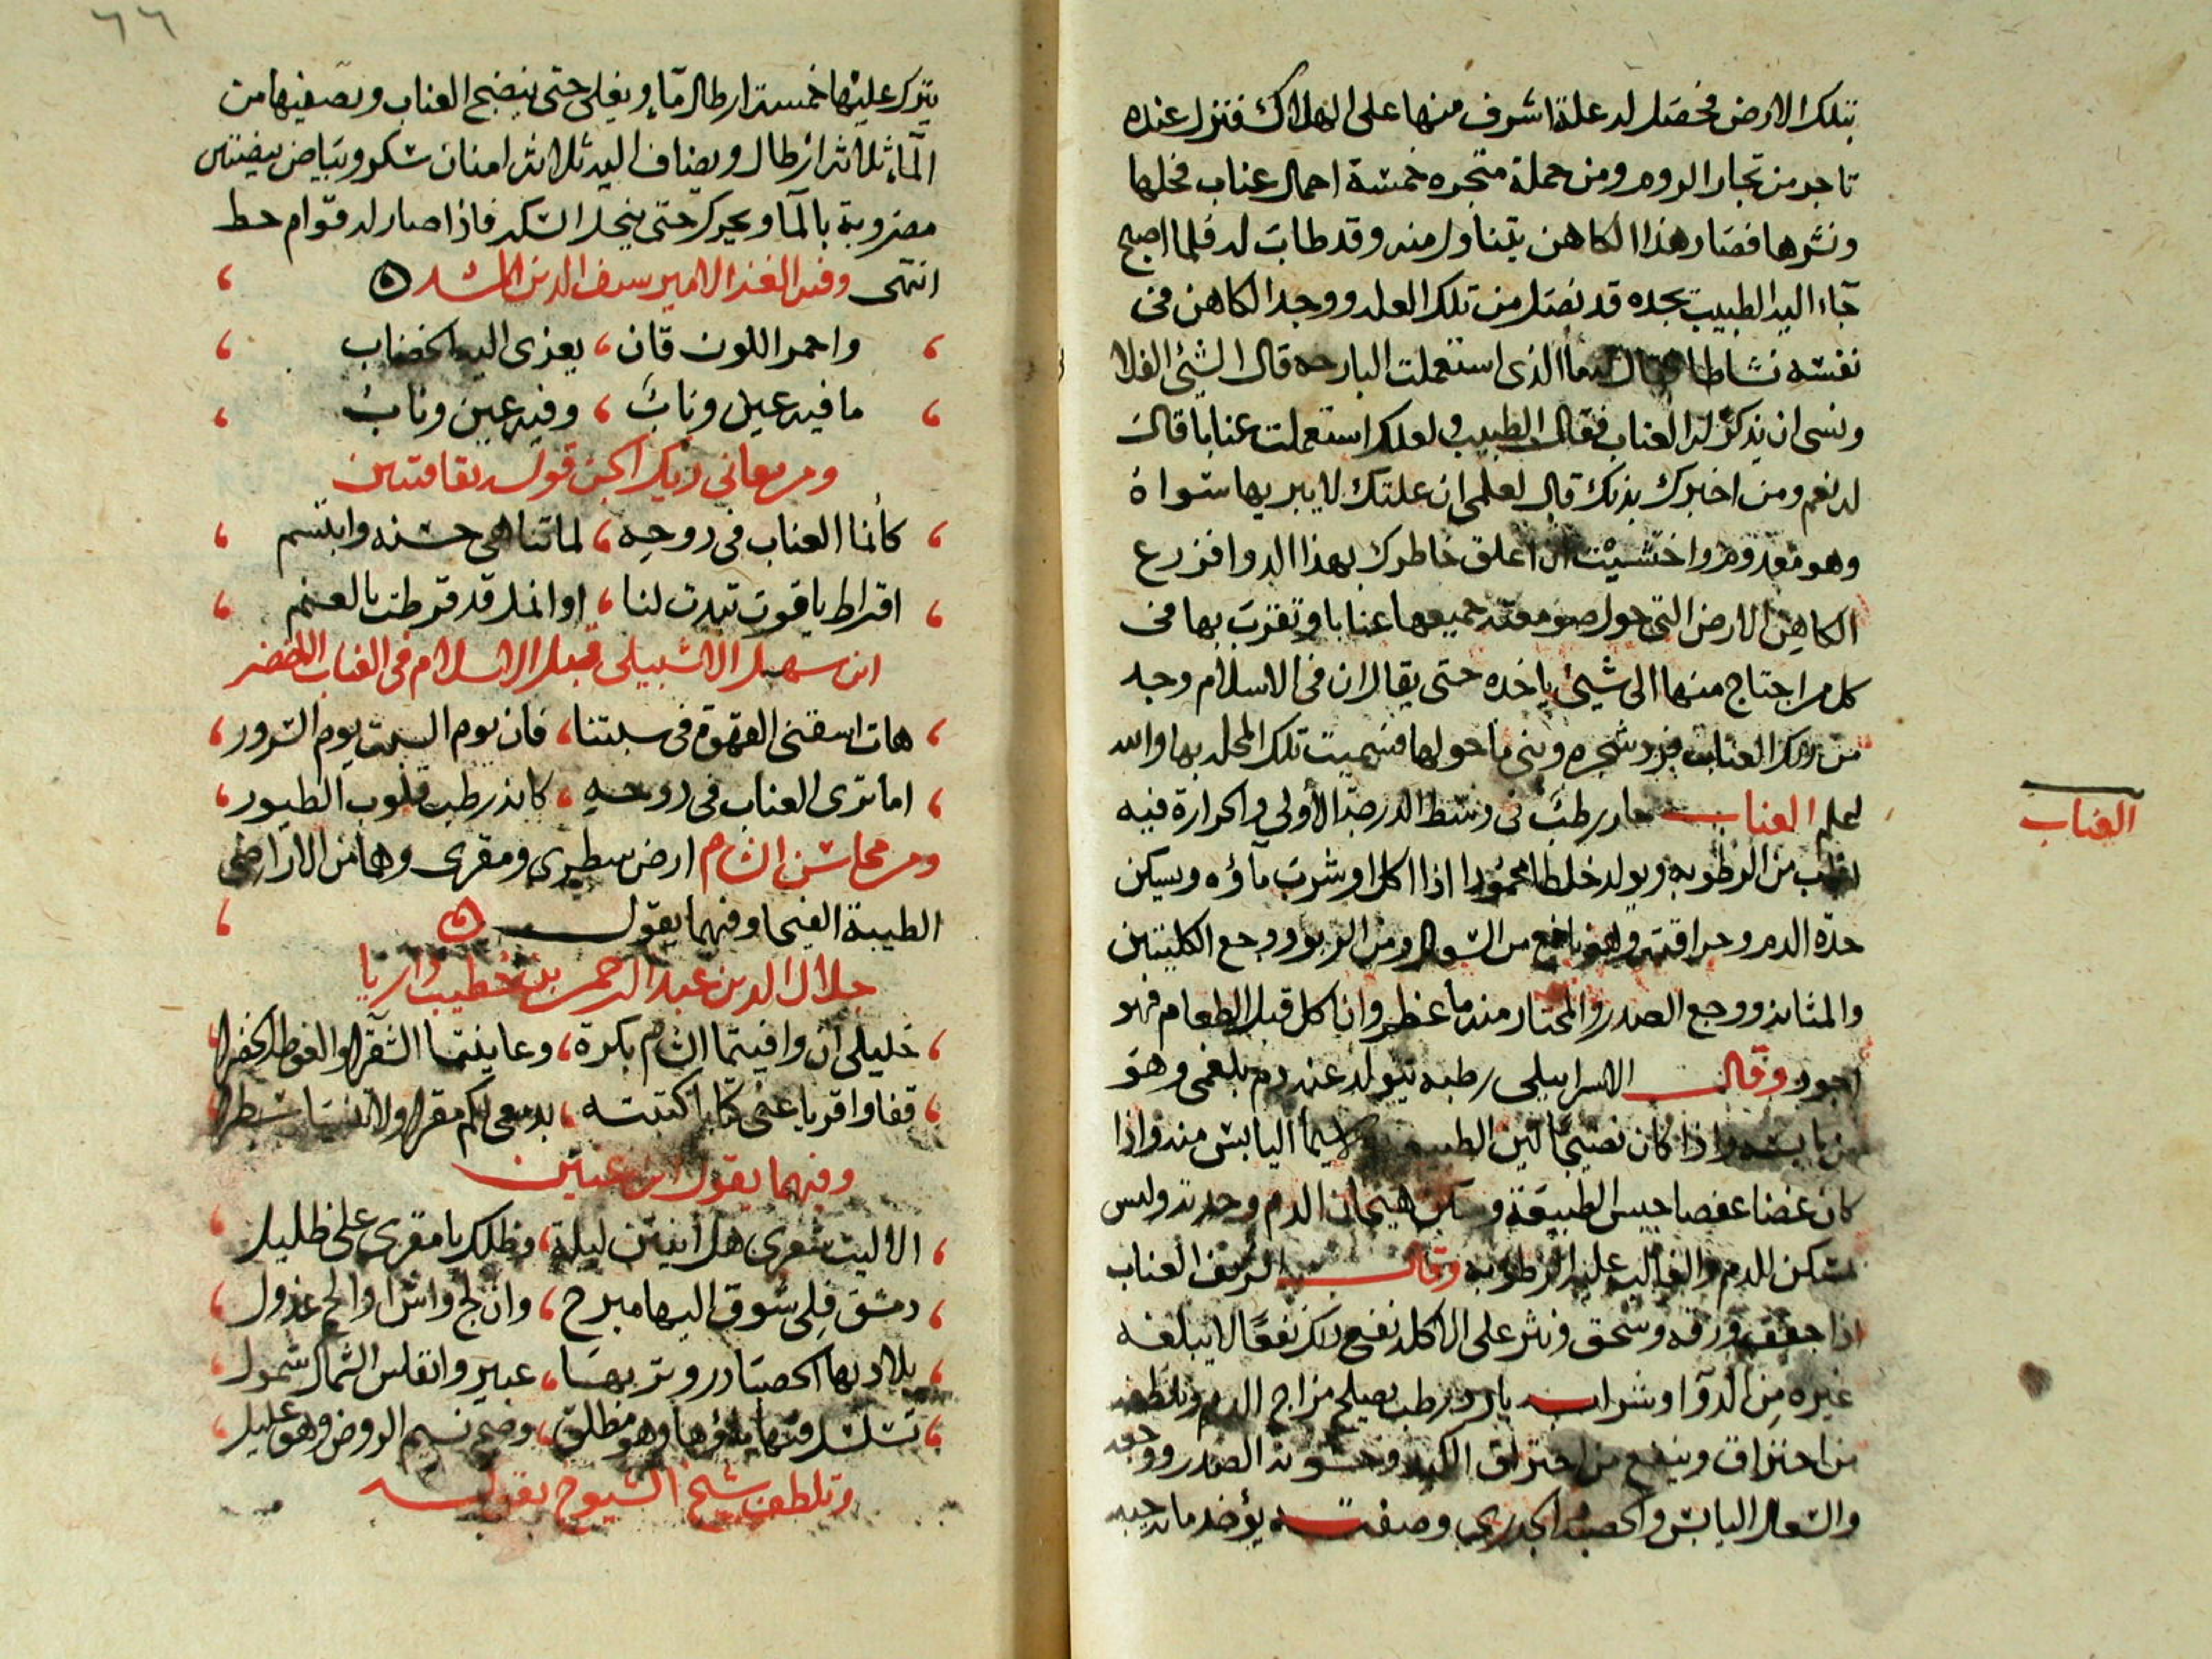 بتلك الارض فحصل له علة اشرف منها على الهلاك فنزل عنده
تاجر من تجار الروم ومن جملة متجره خمسة احمال عناب فحلها
ونشرها فصار هذا الكاهن يتناول منه وقد طاب له فلما اصبح
جاء اليه الطبيب يجده قد نصل من تلك العله ووجد الكاهن في
نفسه نشاطا فقال له ما الذي استعملت البارحه قال الشيئ الفلا
ونسى ان يذكر له العناب فقال الطبيب ولعلك استعملت عنابا قال
له نعم ومن اخبرك بذلك قال لعلمي ان علتك لا يبريها سواه
وهو معدوم واختشيت ان اعلق خاطرك بهذا الدوا فزرع
الكاهن الارض التي حول صومعته جميعها عنابا وتقرب بها في
كل من احتاج منها الى شيئ ياخذه حتى يقال ان في الاسلام وجد
من ذلك العناب فرد شجره وبنى ما حولها فسميت تلك المحله بها والله
اعلم العناب حار رطب في وسط الدرجة الأولى والحرارة فيه
اغلب من الرطوبه ويولد خلطا محمودا اذا اكل او شرب ماؤه ويسكن
حدة الدم وحراقته وهو نافع من السعال ومن الربو ووجع الكليتين
والمثانه ووجع الصدر والمختار منه ما عظم وان اكل قبل الطعام فهو
اجود وقال الاسرايلي رطبه يتولد عنه دم بلغمي وهو
من يابسه واذا كان نضيجا لين الطبيعة لا سيما اليابس منه واذا
كان غضا عفصا حبس الطبيعة وسكن هيجان الدم وحدته وليس
بمسكن للدم والغالب عليه الرطوبه وقال الشريف العناب
اذا جفف ورقه وسحق ونثر على الاكله نفع ذلك نفعا لا يبلغه
غيره من الدوا وشراب بارد رطب يصلح مزاج الدم
من احتراق وينفع من احتراق الكبد وخشونة الصدر ووجعه
والسعال اليابس والحصبه والجدري وصفته يؤخذ مائة حبه
العناب
٦٦
يترك عليها خمسة ارطال ماء ويغلى حتى ينضج العناب ويصفيها من
الماء ثلاثة ارطال ويضاف اليه ثلاثة امنان سكر وبياض بيضتين
مضروبة بالماء ويحرك حتى ينحل السكر فاذا صار له قوام حط
انتهى وفيه الغز الامير سيف الدين المشد ه
واحمر اللون قان، يعزى اليه الخضاب
ما فيه عين وناب، وفيه عين وناب
ومن معاني زنك الجن قوله
كأنما العناب في دوحه، لما تناهى حسنه وابتسم
اقراط ياقوت تبدت لنا، او انمل قد قرطت بالعنم
ابن سهل الاشبيلي قبل الاسلام في العناب الاخضر
هات اسقني القهوة في سبتنا، فان يوم السبت يوم السرور
اما ترى العناب في دوحه، كانه رطب قلوب الطيور
ومن محاسن الشام ارض سطرى ومقرى وهما من الاراضى
الطيبة الفيحا وفيهما يقول ه
جلال الدين عبد الرحمن بن خطيب داريا
خليلي ان وافيتما الشام بكرة، وعاينتما الشقرا والغوطة الخضرا
قفا واقريا عني كتابا كتبته، بدمعي لكم مقرا ولا تنسيا سطرا
وفيهما يقول ابن عنين
الا ليت شعري هل ابيتن ليلة، وظلك يا مقرى علي ظليل
دمشق فلي شوق اليها مبرح، وان لج واش او الح عذول
بلاد بها الحصبا در وتربها، عبير وانفاس الشمال شمول
تسلسل فيها ماؤها وهو مطلق، وصح نسيم الروض وهو عليل
وتلطف شيخ الشيوخ بقوله